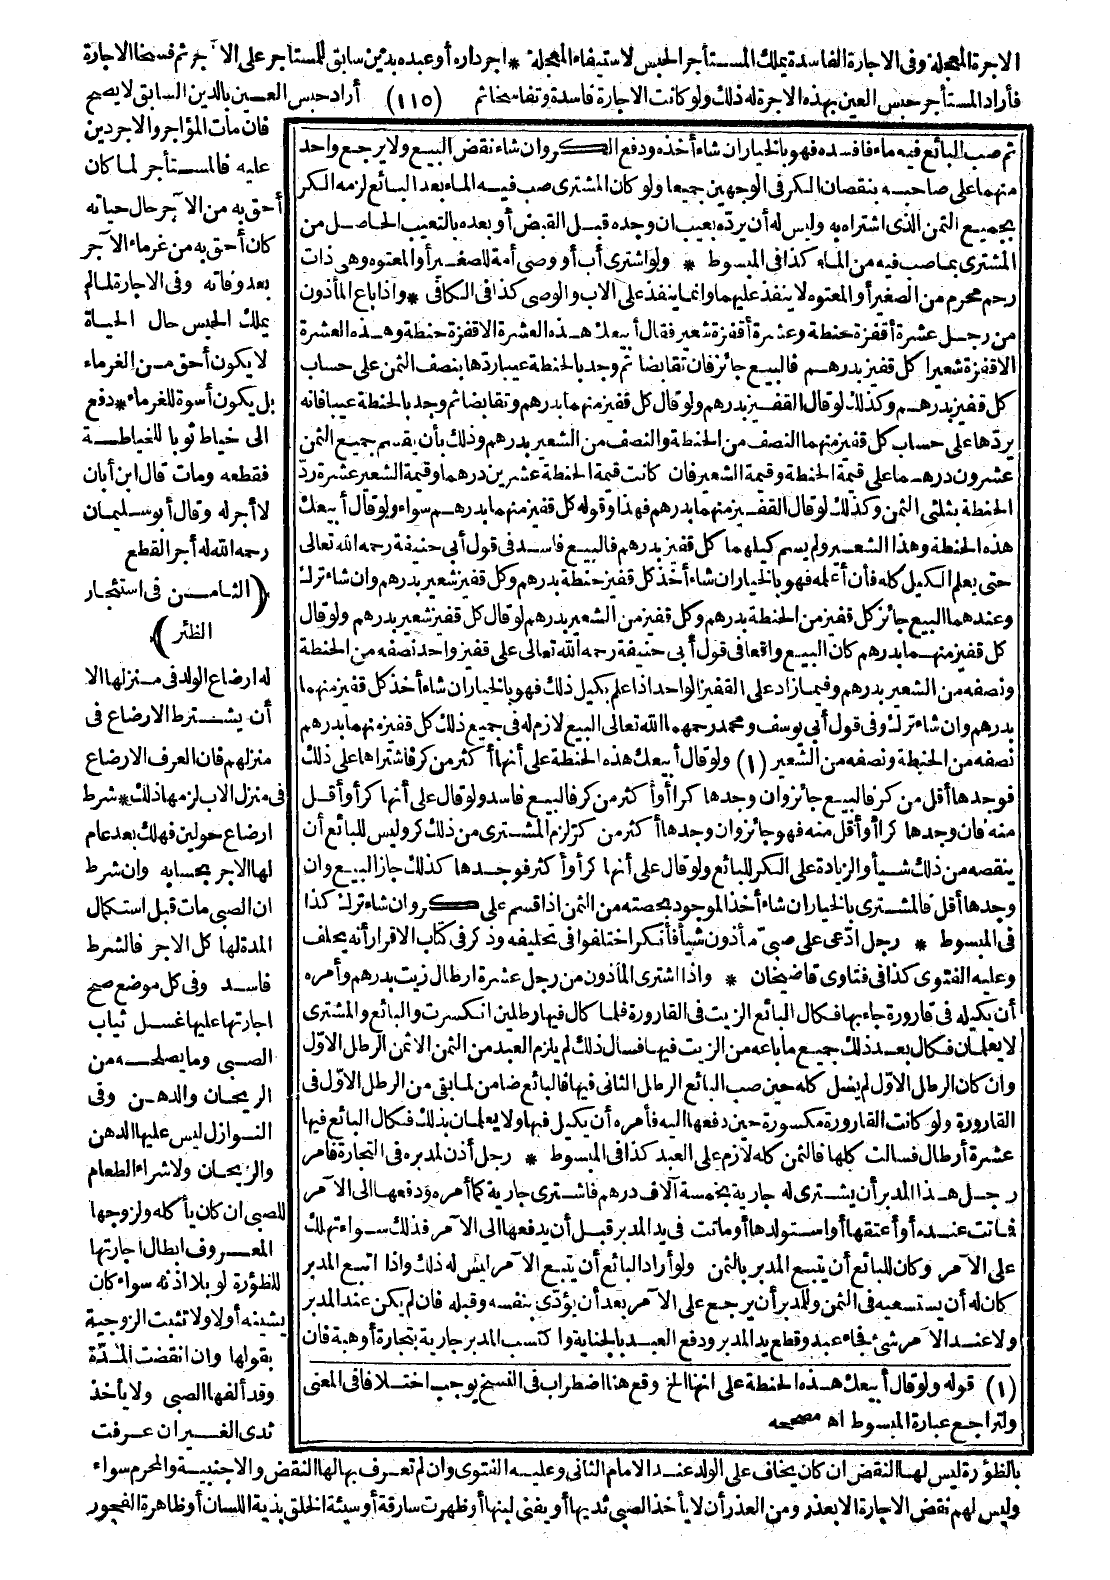 الاجرة المعجلة وفى الاجارة الفاسدة يملك المستأجر الحبس لاستيفاء المعجلة * اجر داره أو عبده بدين سابق للمستاجر على الآجر ثم فسخا الاجارة
فأراد المستأجر حبس العين بهذه الاجرة له ذلك ولو كانت الاجارة فاسدة وتفاسخا ثم (١١٥) أراد حبس العين بالدين السابق لا يصح
فان مات المؤاجر والاجر دين
عليه فالمستأجر لما كان
أحق به من الآجر حال حياته
كان أحق به من غرماء الآجر
بعد وفاته وفى الاجارة لما لم
يملك الحبس حال الحياة
لا يكون أحق من الغرماء
بل يكون أسوة للغرماء * دفع
الى خياط ثوبا للخياطة
فقطعه ومات قال ابن أبان
لا أجر له وقال أبو سليمان
رحمه الله له أجر القطع
(الثامن فى استئجار
الظئر)
له ارضاع الولد فى منزلها الا
أن يشترط الارضاع فى
منزلهم فان العرف الارضاع
فى منزل الاب لزمها ذلك * شرط
ارضاع حولين فهلك بعد عام
لها الاجر بحسابه وان شرط
ان الصبى مات قبل استكمال
المدة لها كل الاجر فالشرط
فاسد وفى كل موضع صح
اجارتها عليها غسل ثياب
الصبى وما يصلحه من
الريحان والدهن وفى
النوازل ليس عليها الدهن
والريحان ولا شراء الطعام
للصبى ان كان يأكله ولزوجها
المعروف ابطال اجارتها
للظؤرة لو بلا اذنه سواء كان
يشينه أو لا ولا تثبت الزوجية
بقولها وان انقضت المدة
وقد ألفها الصبى ولا يأخذ
ثدى الغير ان عرفت
ثم صب البائع فيه ماء فافسده فهو بالخيار ان شاء أخذه ودفع الكر وان شاء نقض البيع ولا يرجع واحد
منهما على صاحبه بنقصان الكر فى الوجهين جميعا ولو كان المشترى صب فيه الماء بعد البائع لزمه الكر
بجميع الثمن الذى اشتراه به وليس له أن يرده بعيب ان وجده قبل القبض أو بعده بالتعيب الحاصل من
المشترى بما صب فيه من الماء كذا فى المبسوط * ولو اشترى أب أو وصى أمة للصغير أو المعتوه وهى ذات
رحم محرم من الصغير أو المعتوه لا ينفذ عليهما وانما ينفذ على الاب والوصى كذا فى الكافى * واذا باع المأذون
من رجل عشرة أقفزة حنطة وعشرة أقفزة شعير فقال أبيعك هذه العشرة الاقفزة حنطة وهذه العشرة
الاقفزة شعيرا كل قفيز بدرهم فالبيع جائز فان تقابضا ثم وجد بالحنطة عيبا ردها بنصف الثمن على حساب
كل قفيز بدرهم وكذلك لو قال القفيز بدرهم ولو قال كل قفيز منهما بدرهم وتقابضا ثم وجد بالحنطة عيبا فانه
يردها على حساب كل قفيز منهما النصف من الحنطة والنصف من الشعير بدرهم وذلك بأن يقسم جميع الثمن
عشرون درهما على قيمة الحنطة وقيمة الشعير فان كانت قيمة الحنطة عشرين درهما وقيمة الشعير عشرة رد
الحنطة بثلثى الثمن وكذلك لو قال القفيز منهما بدرهم فهذا وقوله كل قفيز منهما بدرهم سواء ولو قال أبيعك
هذه الحنطة وهذا الشعير ولم يسم كيلهما كل قفيز بدرهم فالبيع فاسد فى قول أبى حنيفة رحمه الله تعالى
حتى يعلم الكيل كله فأن أعلمه فهو بالخيار ان شاء أخذ كل قفيز حنطة بدرهم وكل قفيز شعير بدرهم وان شاء ترك
وعندهما البيع جائز كل قفيز من الحنطة بدرهم وكل قفيز من الشعير بدرهم لو قال كل قفيز شعير بدرهم ولو قال
كل قفيز منهما بدرهم كان البيع واقعا فى قول أبى حنيفة رحمه الله تعالى على قفيز واحد نصفه من الحنطة
ونصفه من الشعير بدرهم وفيما زاد على القفيز الواحد اذا علم بكيل ذلك فهو بالخيار ان شاء أخذ كل قفيز منهما
بدرهم وان شاء ترك وفى قول أبى يوسف ومحمد رحمهما الله تعالى البيع لازم له فى جميع ذلك كل قفيز منهما بدرهم
نصفه من الحنطة ونصفه من الشعير (١) ولو قال أبيعك هذه الحنطة على أنها أكثر من كر فاشتراها على ذلك
فوجدها أقل من كر فالبيع جائز وان وجدها كرا أو أكثر من كر فالبيع فاسد ولو قال على أنها كر أو أقل
منه فان وجدها كرا أو أقل منه فهو جائز وان وجدها أكثر من كر لزم المشترى من ذلك كر وليس للبائع أن
ينقصه من ذلك شيأ والزيادة على الكر للبائع ولو قال على أنها كر أو أكثر فوجدها كذلك جاز البيع وان
وجدها أقل فالمشترى بالخيار ان شاء أخذ الموجود بحصته من الثمن اذا قسم على كر وان شاء ترك كذا
فى المبسوط * رجل ادعى على صبى مأذون شيأ فأنكر اختلفوا فى تحليفه وذكر فى كتاب الاقرار أنه يحلف
وعليه الفتوى كذا فى فتاوى قاضيخان * واذا اشترى المأذون من رجل عشرة ارطال زيت بدرهم وأمره
أن يكيله فى قارورة جاء بها فكال البائع الزيت فى القارورة فلما كال فيها رطلين انكسرت والبائع والمشترى
لا يعلمان فكال بعد ذلك جميع ما باعه من الزيت فيها فسال ذلك لم يلزم العبد من الثمن الا ثمن الرطل الاول
وان كان الرطل الاول لم يسل كله حين صب البائع الرطل الثانى فيها فالبائع ضامن لما بقى من الرطل الاول فى
القارورة ولو كانت القارورة مكسورة حين دفعها اليه فأمره أن يكيل فيها ولا يعلمان بذلك فكال البائع فيها
عشرة أرطال فسالت كلها فالثمن كله لازم على العبد كذا فى المبسوط * رجل أذن لمدبره فى التجارة فامر
رجل هذا المدبر أن يشترى له جارية بخمسة آلاف درهم فاشترى جارية كما أمره ودفعها الى الآمر
فماتت عنده أو أعتقها أو استولدها أو ماتت فى يد المدبر قبل أن يدفعها الى الآمر فذلك سواء تهلك
على الآمر وكان للبائع أن يتبع المدبر بالثمن ولو أراد البائع أن يتبع الآمر ليس له ذلك واذا اتبع المدبر
كان له أن يستسعيه فى الثمن وللمدبر أن يرجع على الآمر بعد أن يؤدى بنفسه وقبله فان لم يكن عند المدبر
ولا عند الآمر شئ فجاء عبد وقطع يد المدبر ودفع العبد بالجناية واكتسب المدبر جارية بتجارة أو هبة فان
(١) قوله ولو قال أبيعك هذه الحنطة على انها الخ وقع هنا اضطراب فى النسخ يوجب اختلافا فى المعنى
ولتراجع عبارة المبسوط اه مصححه
بالظؤرة ليس لها النقض ان كان يخاف على الولد عند الامام الثانى وعليه الفتوى وان لم تعرف بها لها النقض والاجنبية والمحرم سواء
وليس لهم نقض الاجارة الا بعذر ومن العذر أن لا يأخذ الصبى ثديها أو يفنى لبنها أو ظهرت سارقة أو سيئة الخلق بذية اللسان أو ظاهرة الفجور